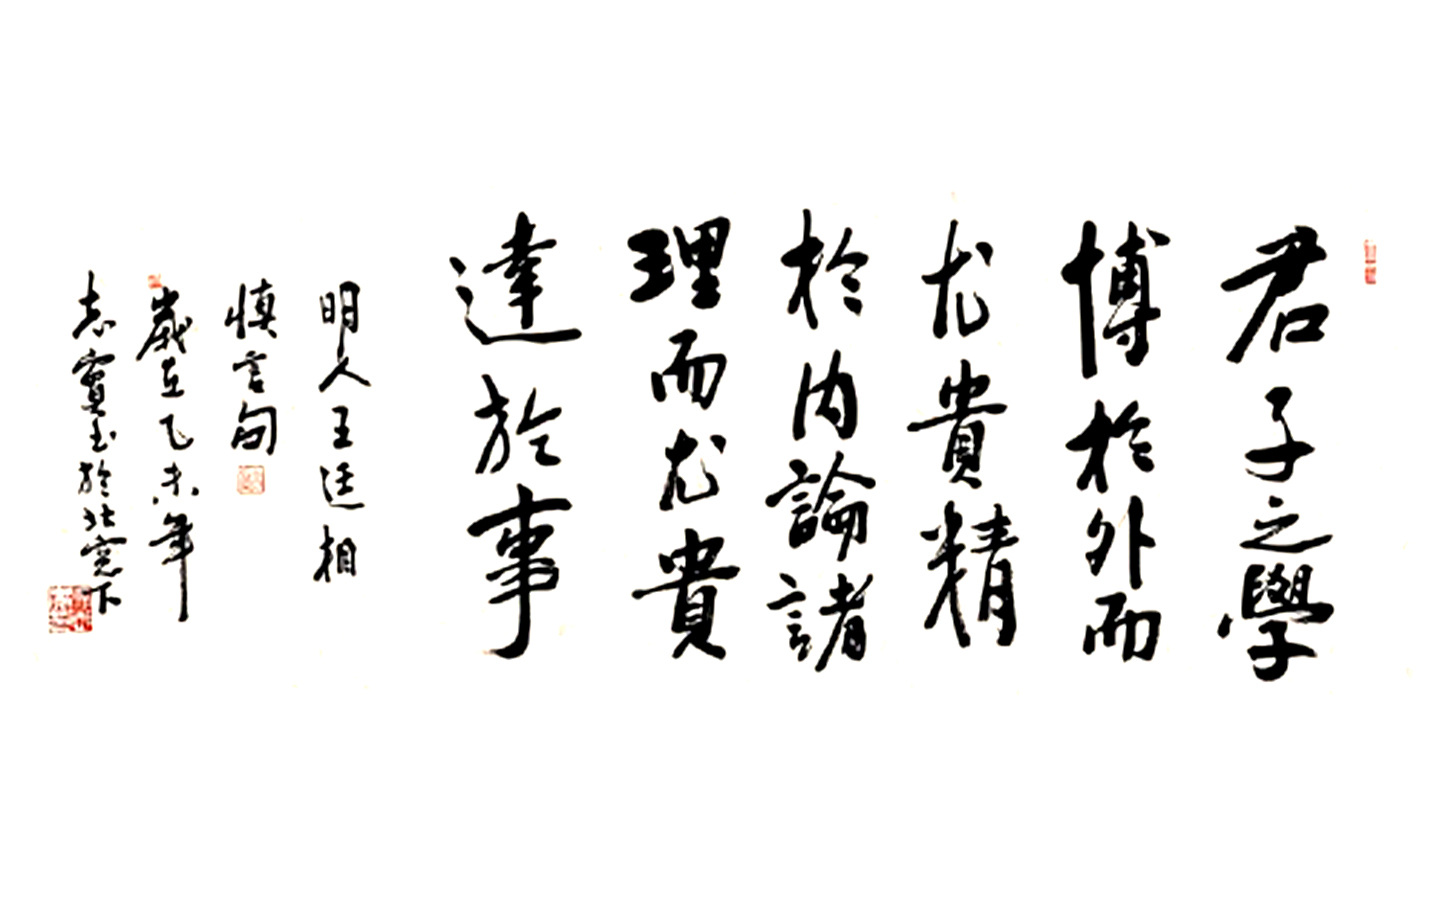 君子之學
博於外而
尤貴精
於內論諸
理而尤貴
達於事
明人王廷相
慎言句
歲在乙未年
志寶書於北窗下